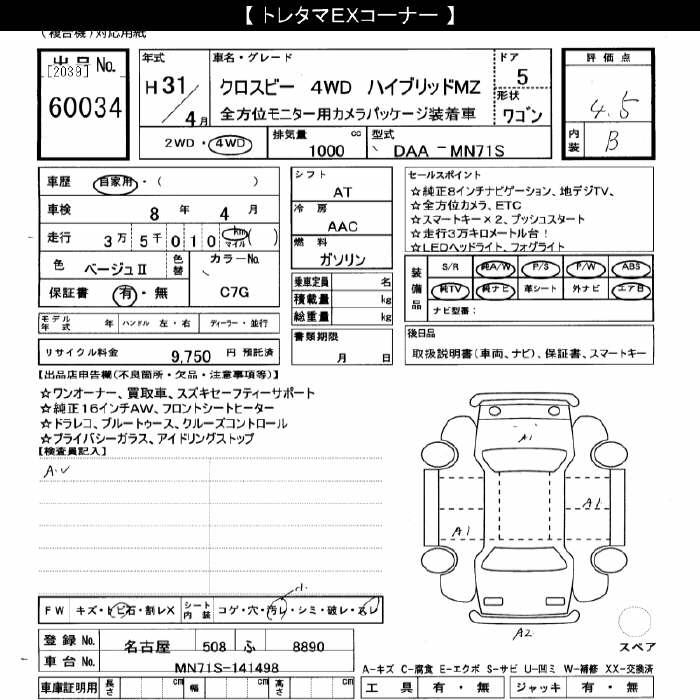 【 トレタマEXコーナー 】
(複合機)対応用紙
出品 No.
[2039]
60034
年式
H 31/4月
車名・グレード
クロスビー 4WD ハイブリッドMZ
全方位モニター用カメラパッケージ装着車
ドア
5
形状
ワゴン
評価点
4.5
内装
B
2WD・4WD
排気量 cc
1000
型式
DAA －MN71S
車歴 自家用・( )
車検 8 年 4 月
走行 3万 5千 010 km マイル ( )
色 ベージュⅡ
色替
カラーNo.
C7G
保証書 有・無
シフト
AT
冷房
AAC
燃料
ガソリン
乗車定員 名
積載量 kg
総重量 kg
セールスポイント
☆純正8インチナビゲーション、地デジTV、
☆全方位カメラ、ETC
☆スマートキー×2、プッシュスタート
☆走行3万キロメートル台！
☆LEDヘッドライト、フォグライト
装備品
S/R 純A/W P/S P/W ABS
純TV 純ナビ 革シート 外ナビ エア日
ナビ型番：
モデル年式 年 ハンドル 左・右 ディーラー・並行
リサイクル料金 9,750 円 預託済
書類期限
月 日
後日品
取扱説明書(車両、ナビ)、保証書、スマートキー
【出品店申告欄(不良箇所・欠品・注意事項等)】
☆ワンオーナー、買取車、スズキセーフティーサポート
☆純正16インチAW、フロントシートヒーター
☆ドラレコ、ブルートゥース、クルーズコントロール
☆プライバシーガラス、アイドリングストップ
【検査員記入】
A1
A1
A1
A2
FW キズ・トビ石・割レX
シート内装 コゲ・穴・汚レ・シミ・破レ・丸レ
登録 No. 名古屋 508 ふ 8890
車台 No. MN71S-141498
スペア
A-キズ C-腐食 E-エクボ S-サビ U-凹ミ W-補修 XX-交換済
車庫証明用 長さ cm 幅 cm 高さ cm
工具 有・無 ジャッキ 有・無